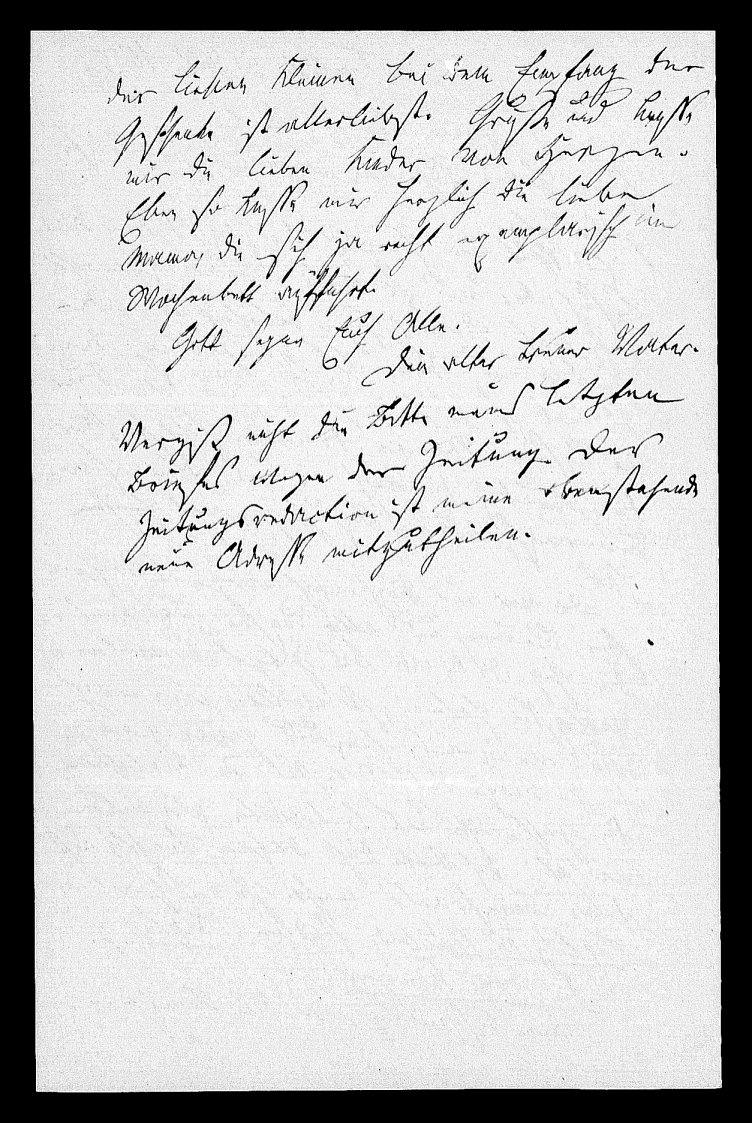 der lieben Kleinen bei dem Empfang der
Geschenke ist allerliebst. Grüße und küsse
mir die lieben Kinder von Herzen.
Eben so küsse mir herzlich die liebe
Mama, die sich ja recht exemplarisch im
Wochenbett aufführt.
Gott segne Euch Alle.
Dein alter treuer Vater.
Vergiß nicht die Bitte meines letzten
Briefes wegen der Zeitung. Der
Zeitungsredaction ist meine obenstehende
neue Adresse mitzutheilen.